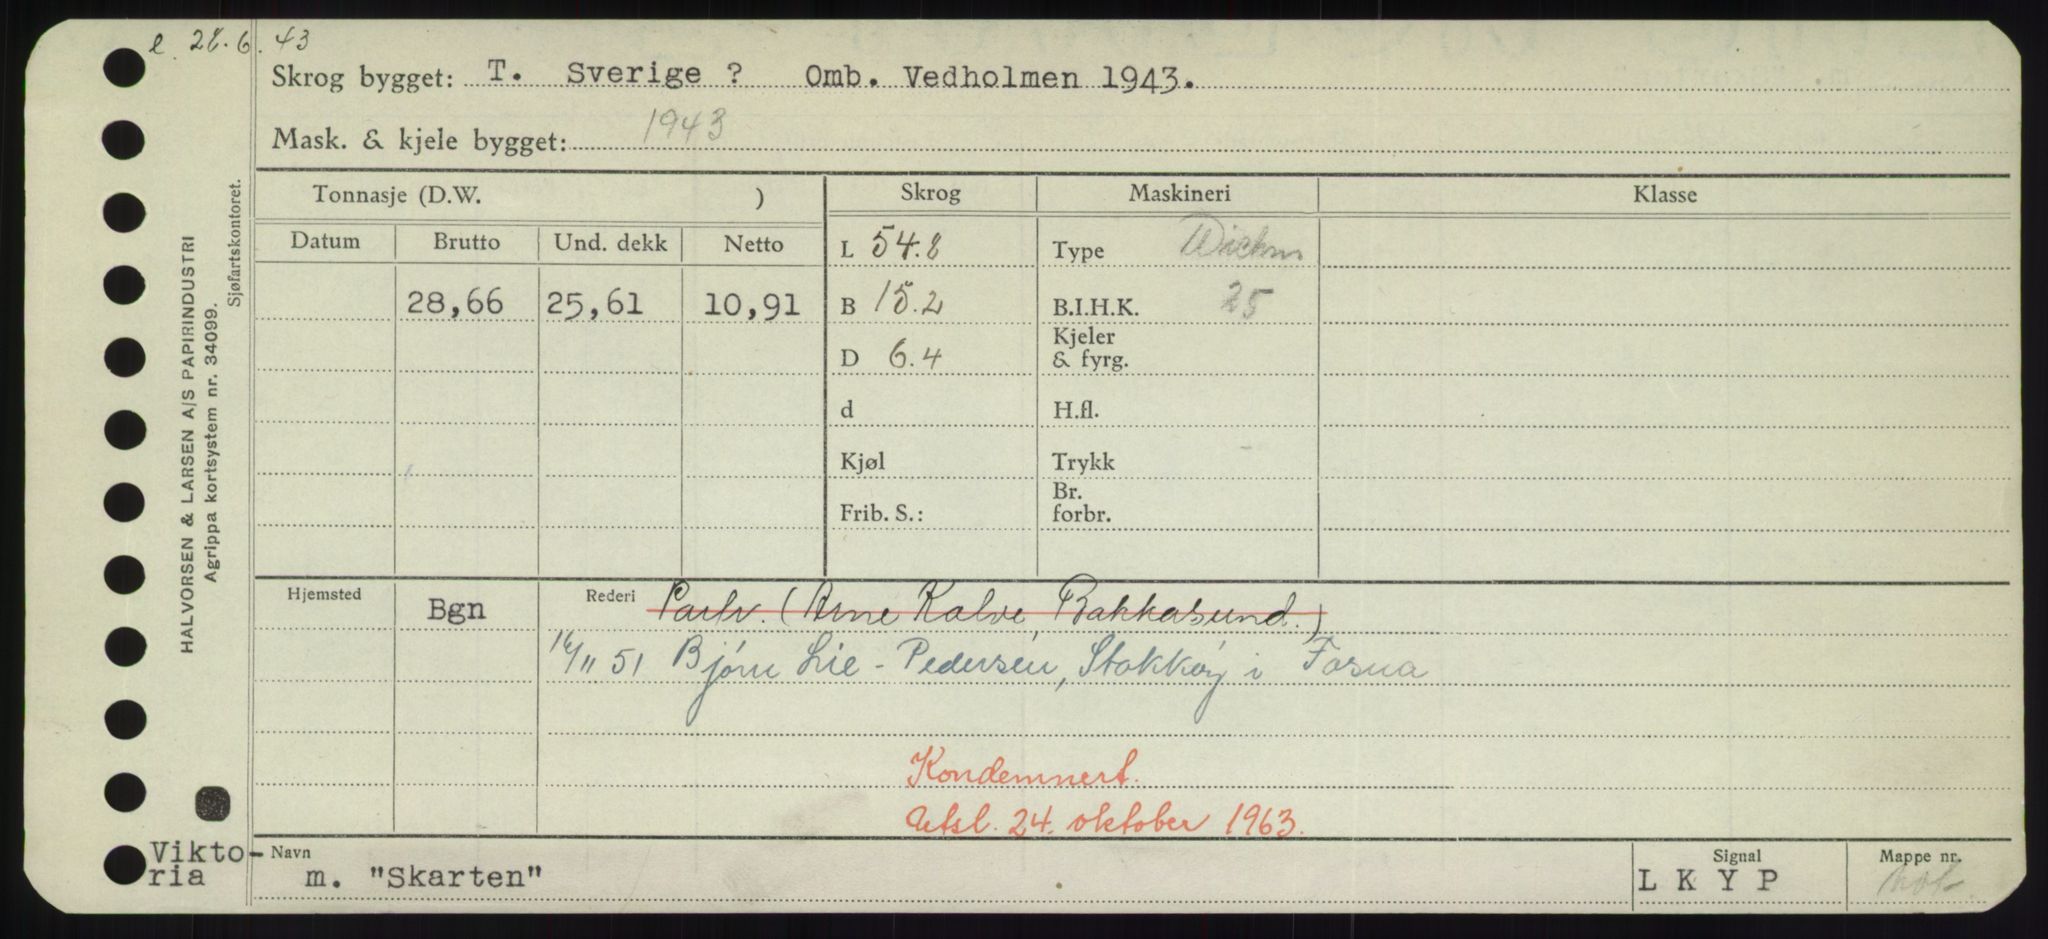 e 28.6.43
Skrog bygget: T. Sverige ? Omb. Vedholmen 1943.
Mask. & kjele bygget: 1943
HALVORSEN & LARSEN A/S PAPIRINDUSTRI
Agrippa kortsystem nr. 34099.
Sjøfartskontoret.
Tonnasje (D.W. ) Skrog Maskineri Klasse
Datum Brutto Und. dekk Netto
L 54.8 Type Wichm
28,66 25,61 10,91 B 15.2 B.I.H.K. 25
Kjeler
D 6.4 & fyrg.
d H.fl.
Kjøl Trykk
Br.
Frib. S.: forbr.
Hjemsted Bgn Rederi Partr. (Arne Kalve, Bakkasund.)
16/11 51 Bjørn Lie-Pedersen, Stokkøy i Fosna
Kondemnert.
Utsl. 24. oktober 1963.
Viktoria
Navn m. "Skarten" Signal L K Y P Mappe nr.